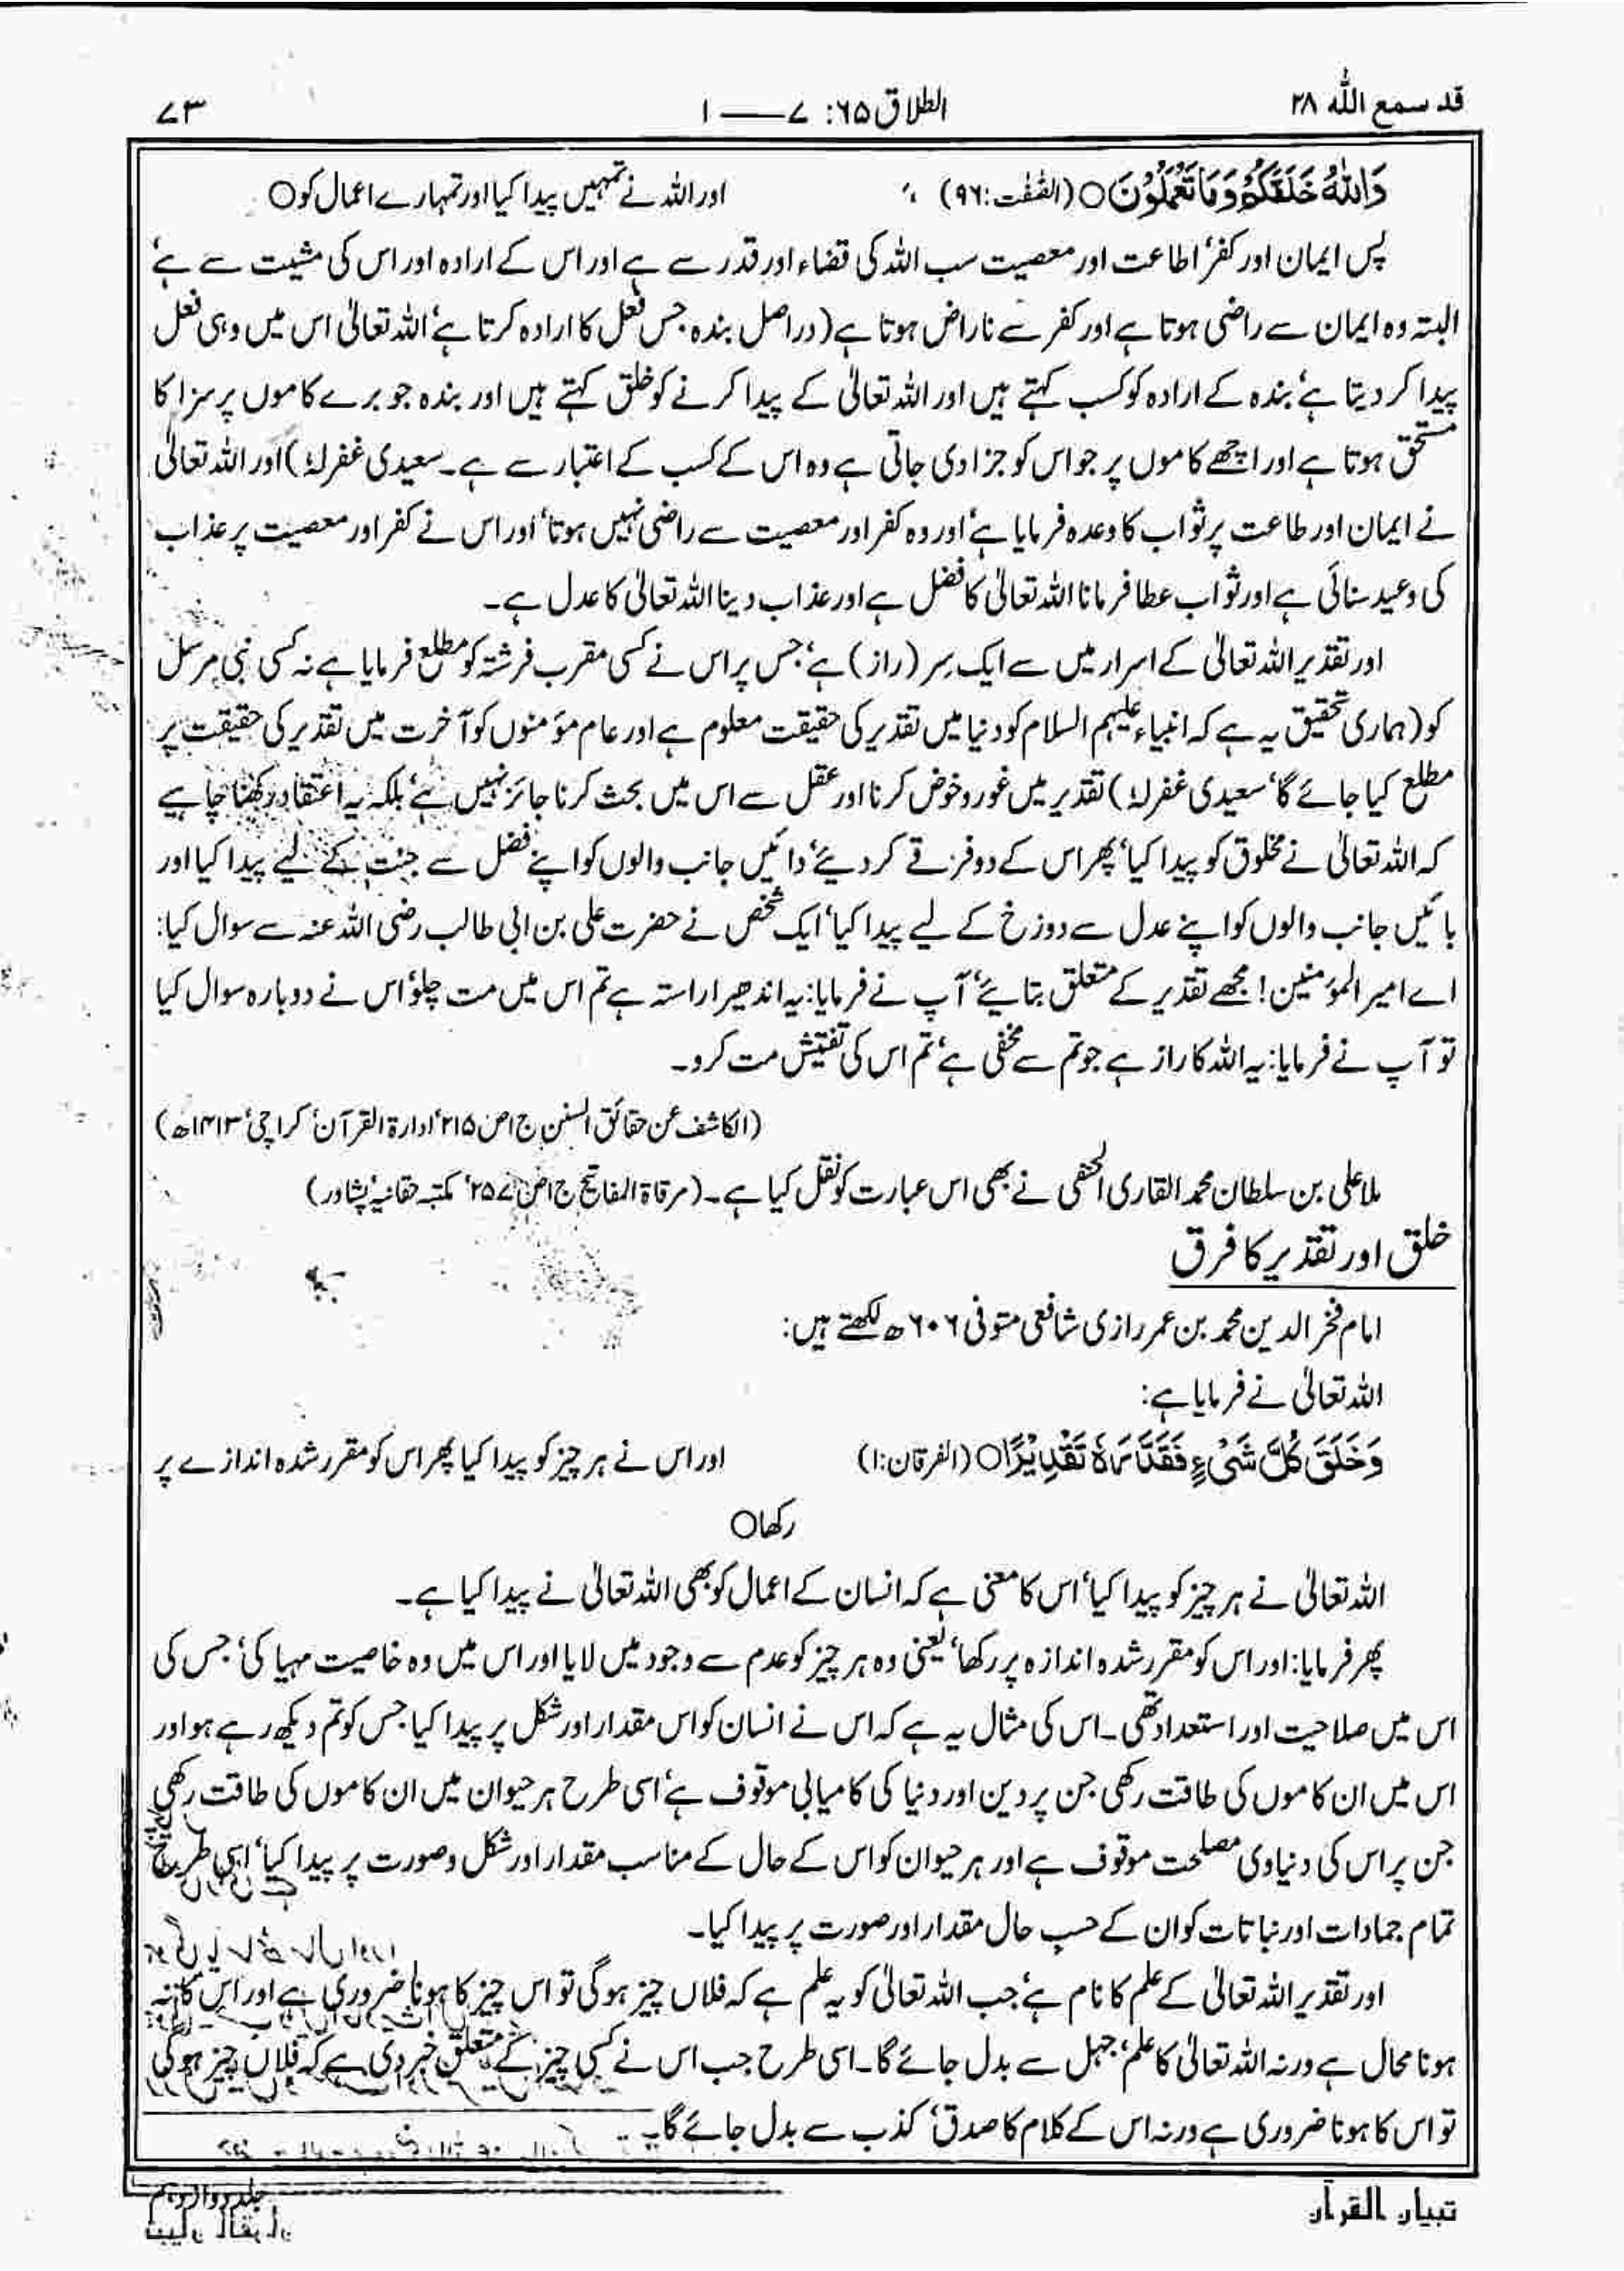 قد سمع اللہ ۲۸
الطلاق ۶۵: ۷ —— ۱
۷۳
وَاللّٰهُ خَلَقَكُمْ وَمَا تَعْمَلُوْنَ ○ (الصّٰفّٰت: ۹۶) اور اللہ نے تمہیں پیدا کیا اور تمہارے اعمال کو ○
پس ایمان اور کفر‘ اطاعت اور معصیت سب اللہ کی قضاء اور قدر سے ہے اور اس کے ارادہ اور اس کی مشیت سے ہے‘
البتہ وہ ایمان سے راضی ہوتا ہے اور کفر سے ناراض ہوتا ہے (دراصل بندہ جس فعل کا ارادہ کرتا ہے‘ اللہ تعالیٰ اس میں وہی فعل
پیدا کر دیتا ہے‘ بندہ کے ارادہ کو کسب کہتے ہیں اور اللہ تعالیٰ کے پیدا کرنے کو خلق کہتے ہیں اور بندہ جو برے کاموں پر سزا کا
مستحق ہوتا ہے اور اچھے کاموں پر جو اس کو جزا دی جاتی ہے وہ اس کے کسب کے اعتبار سے ہے۔ سعیدی غفرلہٗ) اور اللہ تعالیٰ
نے ایمان اور طاعت پر ثواب کا وعدہ فرمایا ہے‘ اور وہ کفر اور معصیت سے راضی نہیں ہوتا‘ اور اس نے کفر اور معصیت پر عذاب
کی وعید سنائی ہے اور ثواب عطا فرمانا اللہ تعالیٰ کا فضل ہے اور عذاب دینا اللہ تعالیٰ کا عدل ہے۔
اور تقدیر اللہ تعالیٰ کے اسرار میں سے ایک سِر (راز) ہے‘ جس پر اس نے کسی مقرب فرشتہ کو مطلع فرمایا ہے نہ کسی نبی مرسل
کو (ہماری تحقیق یہ ہے کہ انبیاء علیہم السلام کو دنیا میں تقدیر کی حقیقت معلوم ہے اور عام مؤمنوں کو آخرت میں تقدیر کی حقیقت پر
مطلع کیا جائے گا‘ سعیدی غفرلہٗ) تقدیر میں غور و خوض کرنا اور عقل سے اس میں بحث کرنا جائز نہیں ہے‘ بلکہ یہ اعتقاد رکھنا چاہیے
کہ اللہ تعالیٰ نے مخلوق کو پیدا کیا‘ پھر اس کے دو فرقے کر دیئے‘ دائیں جانب والوں کو اپنے فضل سے جنت کے لیے پیدا کیا اور
بائیں جانب والوں کو اپنے عدل سے دوزخ کے لیے پیدا کیا‘ ایک شخص نے حضرت علی بن ابی طالب رضی اللہ عنہ سے سوال کیا:
اے امیر المؤمنین! مجھے تقدیر کے متعلق بتایئے‘ آپ نے فرمایا: یہ اندھیرا راستہ ہے تم اس میں مت چلو‘ اس نے دوبارہ سوال کیا
تو آپ نے فرمایا: یہ اللہ کا راز ہے جو تم سے مخفی ہے‘ تم اس کی تفتیش مت کرو۔
(الکاشف عن حقائق السنن ج۱ ص۲۱۵‘ ادارۃ القرآن‘ کراچی‘ ۱۴۱۳ھ)
ملا علی بن سلطان محمد القاری الحنفی نے بھی اس عبارت کو نقل کیا ہے۔ (مرقاۃ المفاتیح ج۱ ص۲۵۷‘ مکتبہ حقانیہ‘ پشاور)
خلق اور تقدیر کا فرق
امام فخر الدین محمد بن عمر رازی شافعی متوفی ۶۰۶ھ لکھتے ہیں:
اللہ تعالیٰ نے فرمایا ہے:
وَخَلَقَ كُلَّ شَیْءٍ فَقَدَّرَهٗ تَقْدِیْرًا ○ (الفرقان: ۱) اور اس نے ہر چیز کو پیدا کیا پھر اس کو مقرر شدہ اندازے پر
رکھا ○
اللہ تعالیٰ نے ہر چیز کو پیدا کیا‘ اس کا معنی ہے کہ انسان کے اعمال کو بھی اللہ تعالیٰ نے پیدا کیا ہے۔
پھر فرمایا: اور اس کو مقرر شدہ اندازہ پر رکھا‘ یعنی وہ ہر چیز کو عدم سے وجود میں لایا اور اس میں وہ خاصیت مہیا کی‘ جس کی
اس میں صلاحیت اور استعداد تھی۔ اس کی مثال یہ ہے کہ اس نے انسان کو اس مقدار اور شکل پر پیدا کیا جس کو تم دیکھ رہے ہو اور
اس میں ان کاموں کی طاقت رکھی جن پر دین اور دنیا کی کامیابی موقوف ہے‘ اسی طرح ہر حیوان میں ان کاموں کی طاقت رکھی
جن پر اس کی دنیاوی مصلحت موقوف ہے اور ہر حیوان کو اس کے حال کے مناسب مقدار اور شکل و صورت پر پیدا کیا‘ اسی طرح
تمام جمادات اور نباتات کو ان کے حسب حال مقدار اور صورت پر پیدا کیا۔
اور تقدیر اللہ تعالیٰ کے علم کا نام ہے‘ جب اللہ تعالیٰ کو یہ علم ہے کہ فلاں چیز ہو گی تو اس چیز کا ہونا ضروری ہے اور اس کا نہ
ہونا محال ہے ورنہ اللہ تعالیٰ کا علم‘ جہل سے بدل جائے گا۔ اسی طرح جب اس نے کسی چیز کے متعلق خبر دی ہے کہ فلاں چیز ہو گی
تو اس کا ہونا ضروری ہے ورنہ اس کے کلام کا صدق‘ کذب سے بدل جائے گا۔
تبیان القرآن
جلد دوازدہم